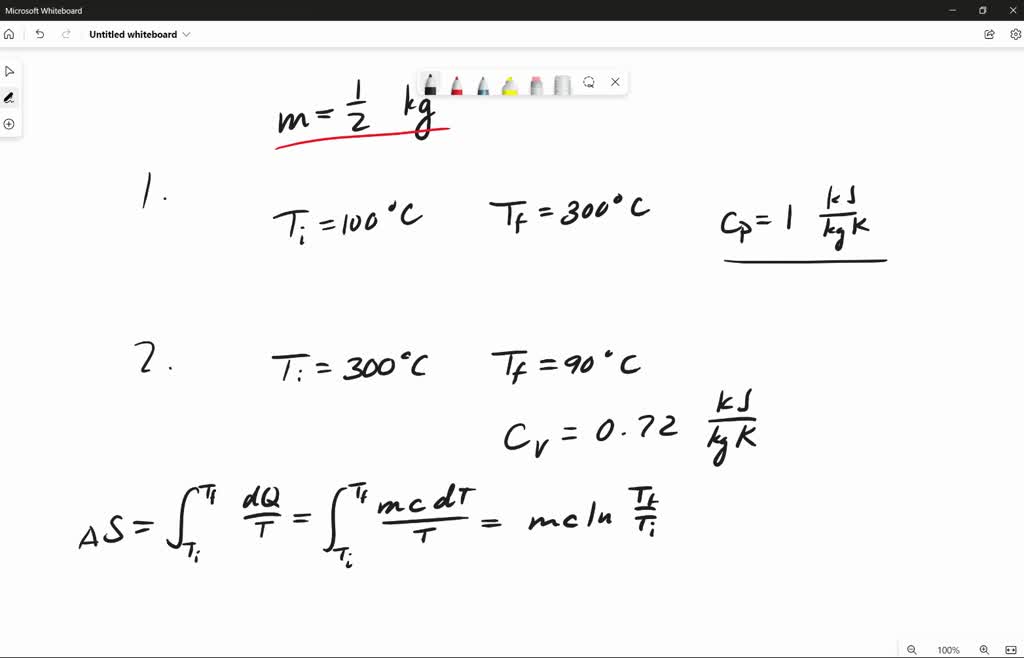 Microsoft Whiteboard
Untitled whiteboard
m = 1/2 kg
1.
Ti = 100°C Tf = 300°C Cp = 1 kJ/kgK
2.
Ti = 300°C Tf = 90°C
Cv = 0.72 kJ/kgK
ΔS = ∫_Ti^Tf dQ/T = ∫_Ti^Tf mcdT/T = mc ln Tf/Ti
100%